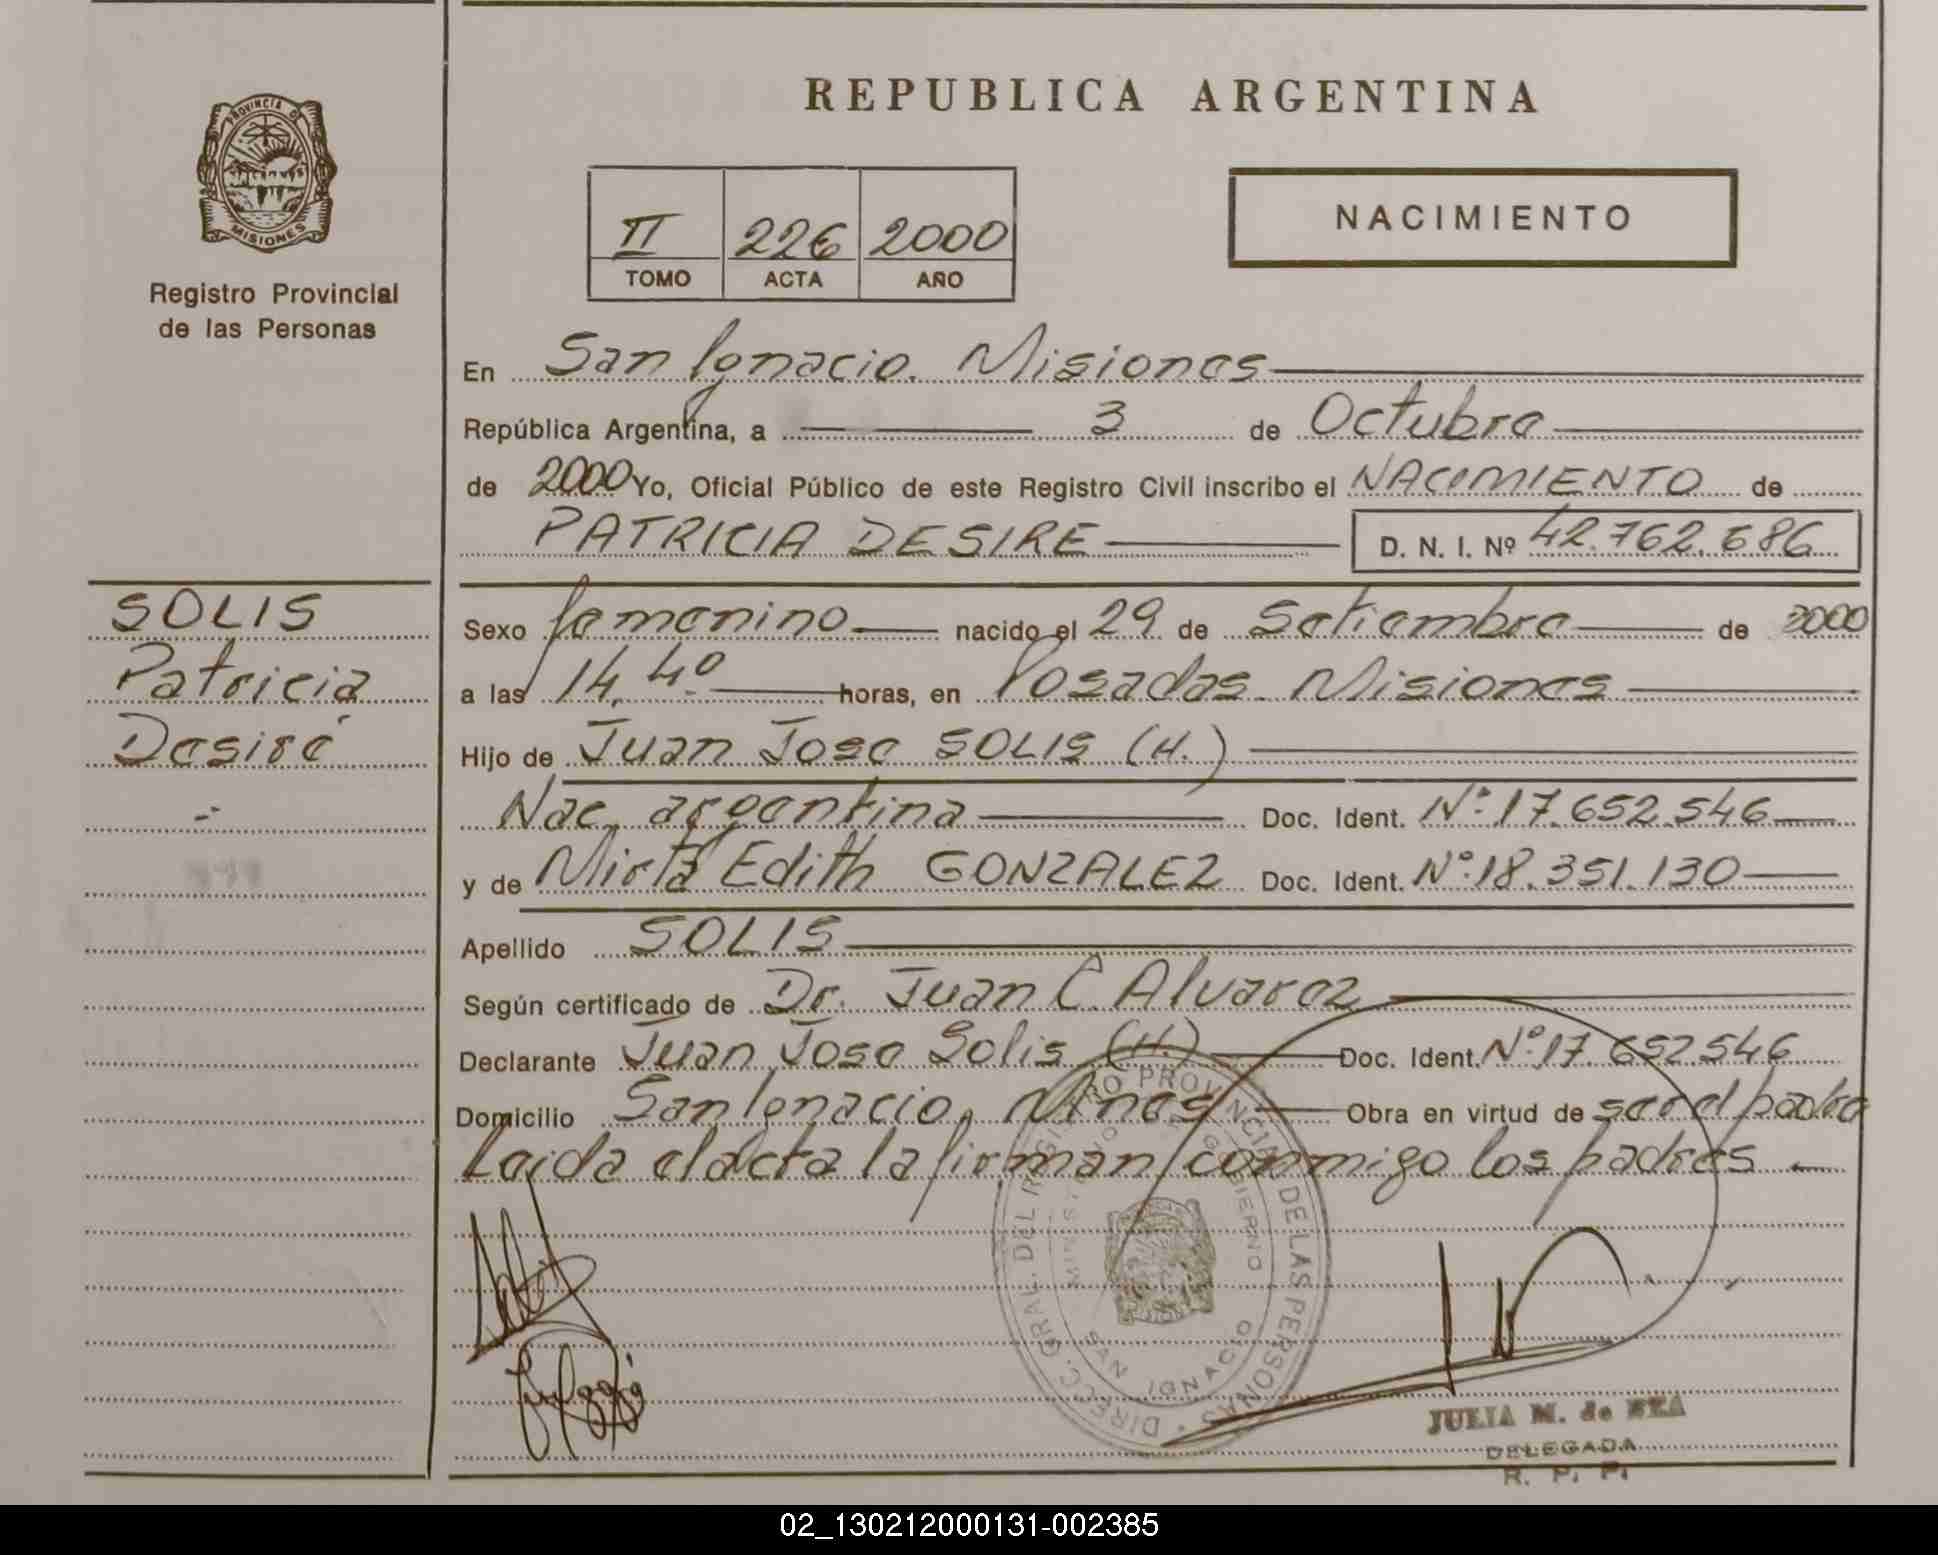 REPUBLICA ARGENTINA
PROVINCIA DE
MISIONES
Registro Provincial
de las Personas
II 226 2000
TOMO ACTA AÑO
NACIMIENTO
En San Ignacio. Misiones
República Argentina, a 3 de Octubre
de 2000 Yo, Oficial Público de este Registro Civil inscribo el NACIMIENTO de
PATRICIA DESIRE D. N. I. Nº 42.762.686
SOLIS
Patricia
Desiré
Sexo femenino nacido el 29 de Setiembre de 2000
a las 14,40 horas, en Posadas. Misiones
Hijo de Juan Jose SOLIS (H.)
Nac. argentina Doc. Ident. Nº 17.652.546
y de Mirta Edith GONZALEZ Doc. Ident. Nº 18.351.130
Apellido SOLIS
Según certificado de Dr. Juan C. Alvarez
Declarante Juan Jose Solis (H.) Doc. Ident. Nº 17.652546
Domicilio San Ignacio, Mnes Obra en virtud de ser el padre
Leida el acta la firman conmigo los padres.
DIRECC. GRAL. DEL REGISTRO PROVINCIAL DE LAS PERSONAS
MINISTERIO GOBIERNO
SAN IGNACIO
JULIA M. de
DELEGADA
R. P. P.
02_130212000131-002385